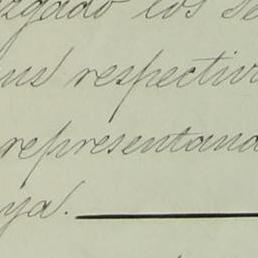 zgado los se
us respectiv
representand
ya.